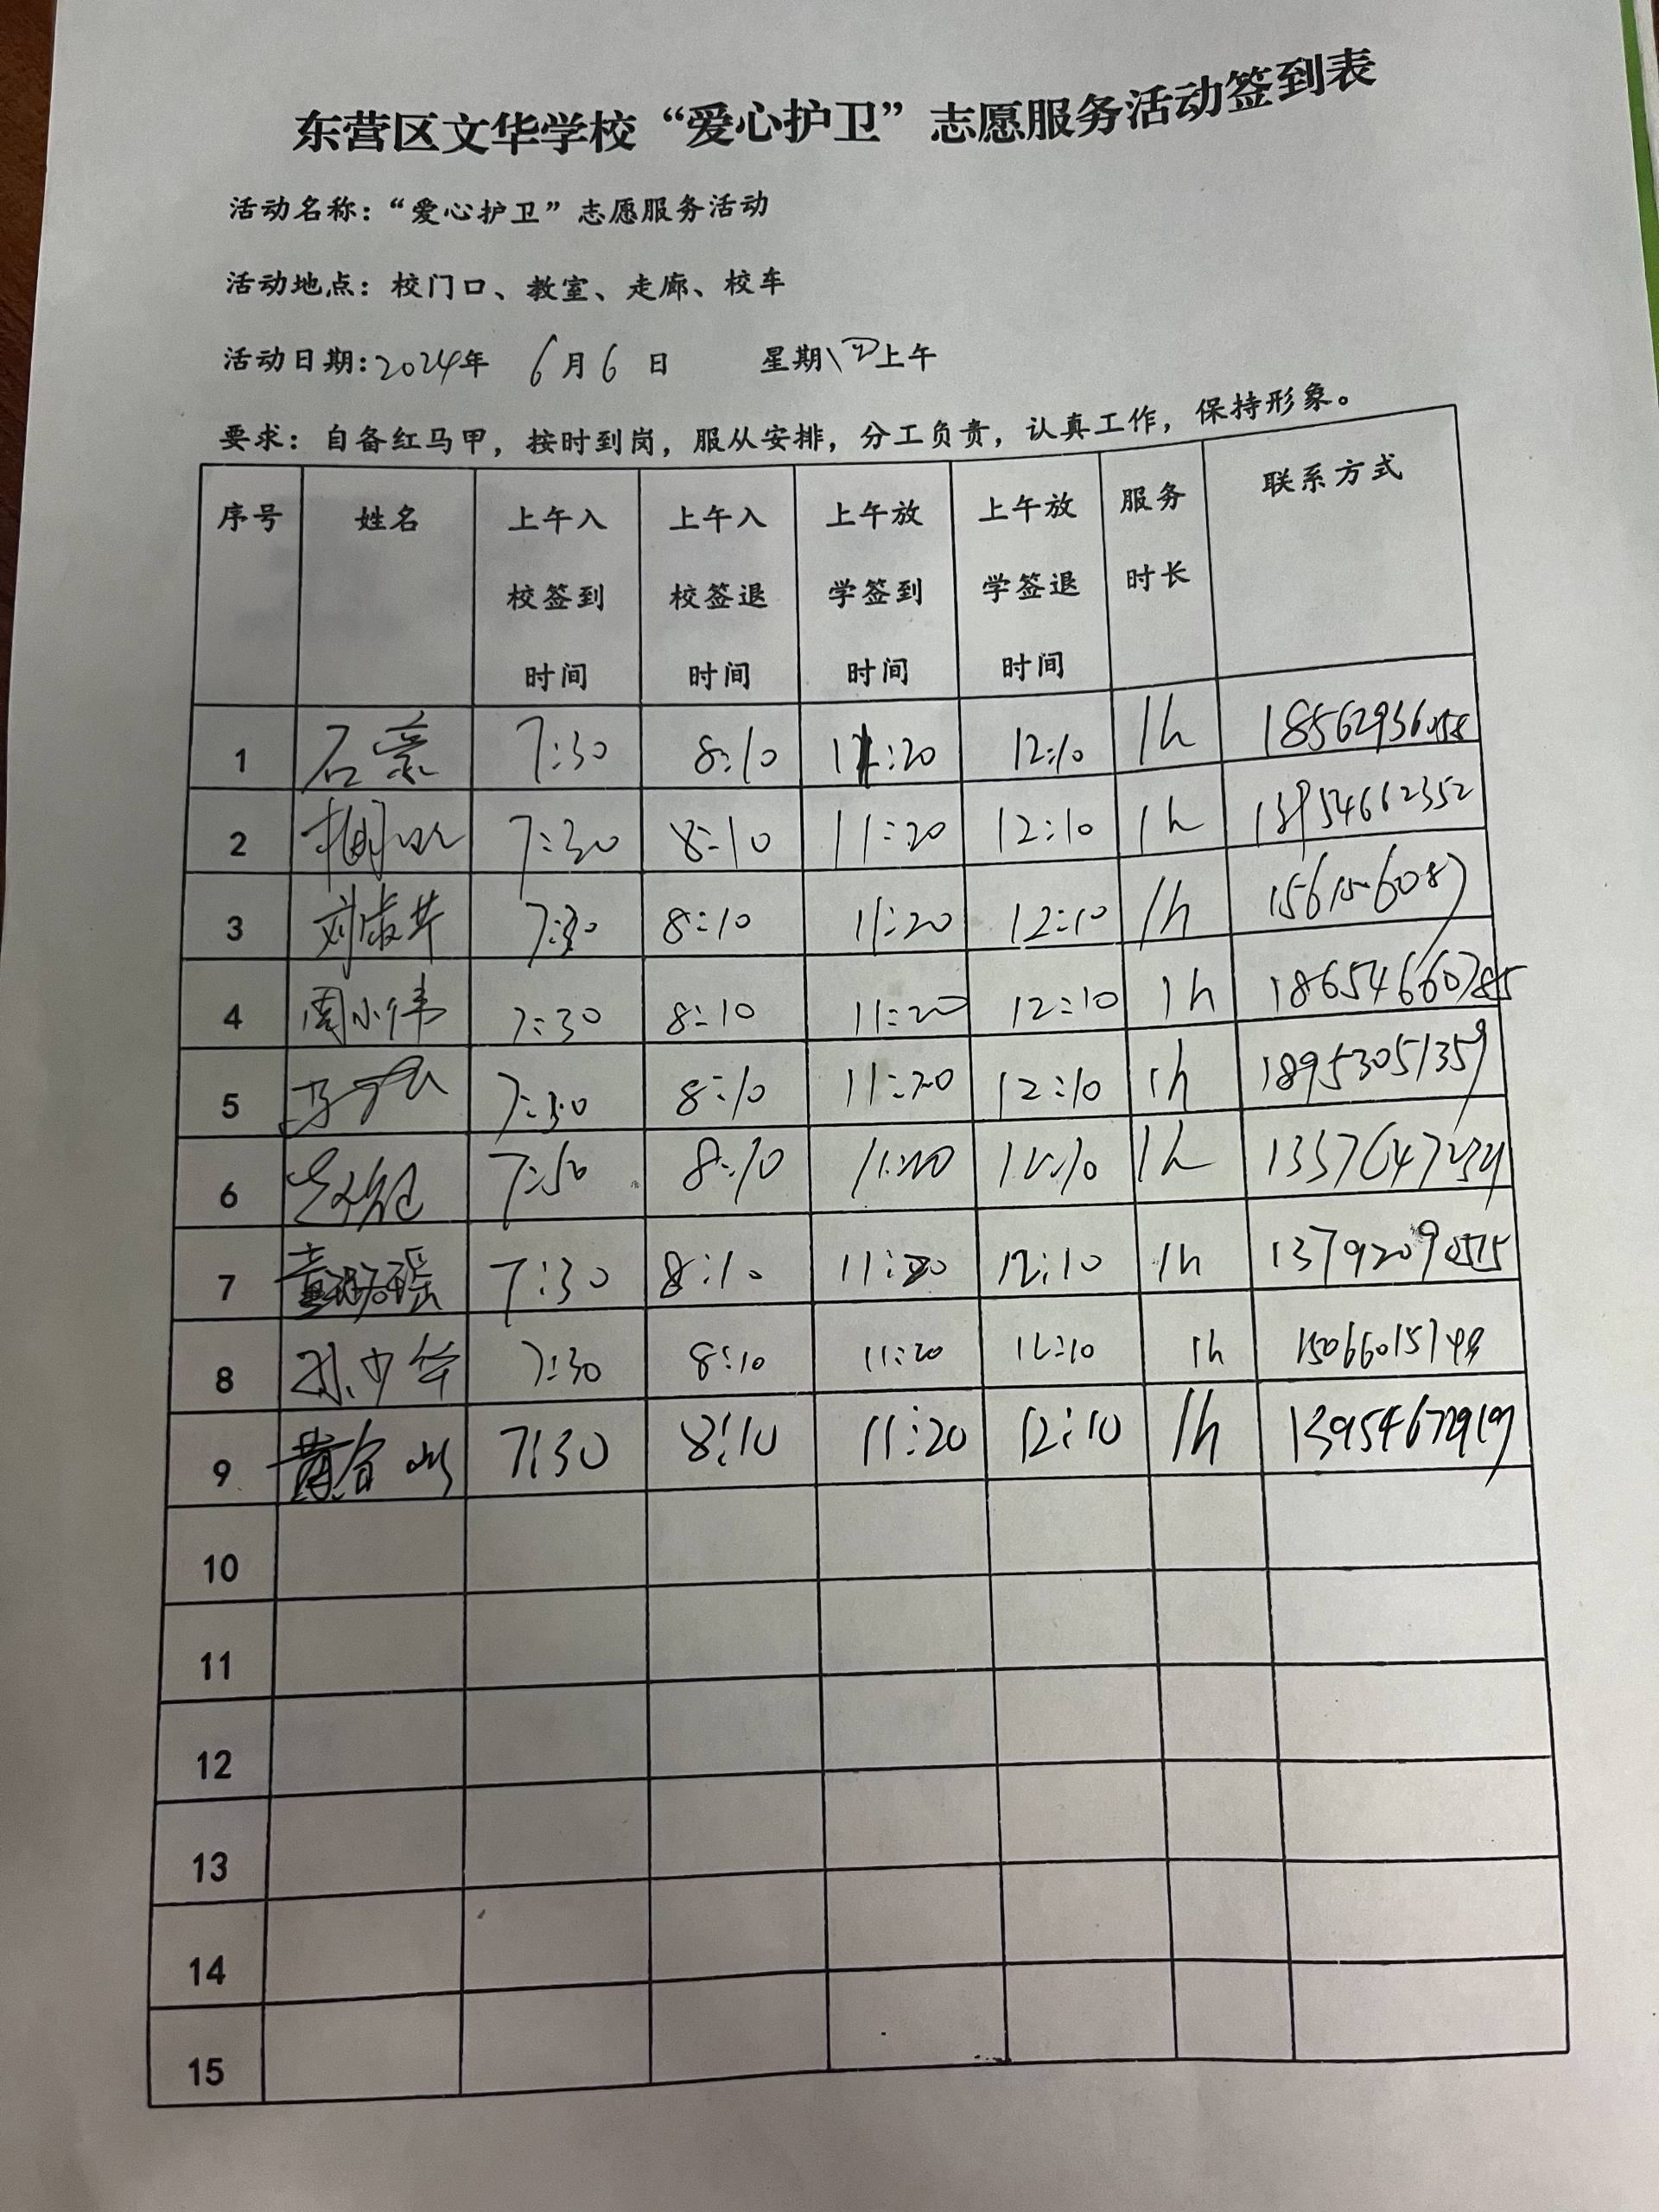 东营区文华学校“爱心护卫”志愿服务活动签到表
活动名称：“爱心护卫”志愿服务活动
活动地点：校门口、教室、走廊、校车
活动日期:2024年 6月6日 星期四上午
要求：自备红马甲，按时到岗，服从安排，分工负责，认真工作，保持形象。
序号 姓名 上午入校签到时间 上午入校签退时间 上午放学签到时间 上午放学签退时间 服务时长 联系方式
1 7:30 8:10 11:20 12:10 1h
2 7:30 8:10 11:20 12:10 1h 13954662352
3 7:30 8:10 11:20 12:10 1h
4 周小伟 7:30 8:10 11:20 12:10 1h 18654660785
5 7:30 8:10 11:20 12:10 1h 18953051359
6 8:10 11:20 12:10 1h
7 7:30 8:10 11:20 12:10 1h
8 孙少华 7:30 8:10 11:20 12:10 1h
9 7:30 8:10 11:20 12:10 1h
10
11
12
13
14
15